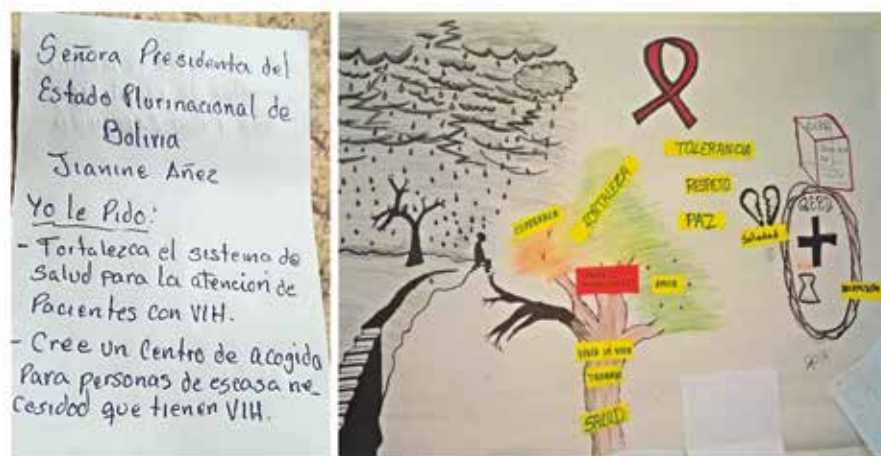 Señora Presidenta del
Estado Plurinacional de
Bolivia
Jianine Añez
Yo le Pido:
- Fortalezca el sistema de
Salud para la atención de
Pacientes con VIH.
- Cree un Centro de acogida
Para personas de escasa ne_
cesidad que tienen VIH.
TOLERANCIA
RESPETO
PAZ
FORTALEZA
ESPERANZA
AMOR
VIVIR LA VIDA
TRABAJO
SALUD
Soledad
DEPRESIÓN